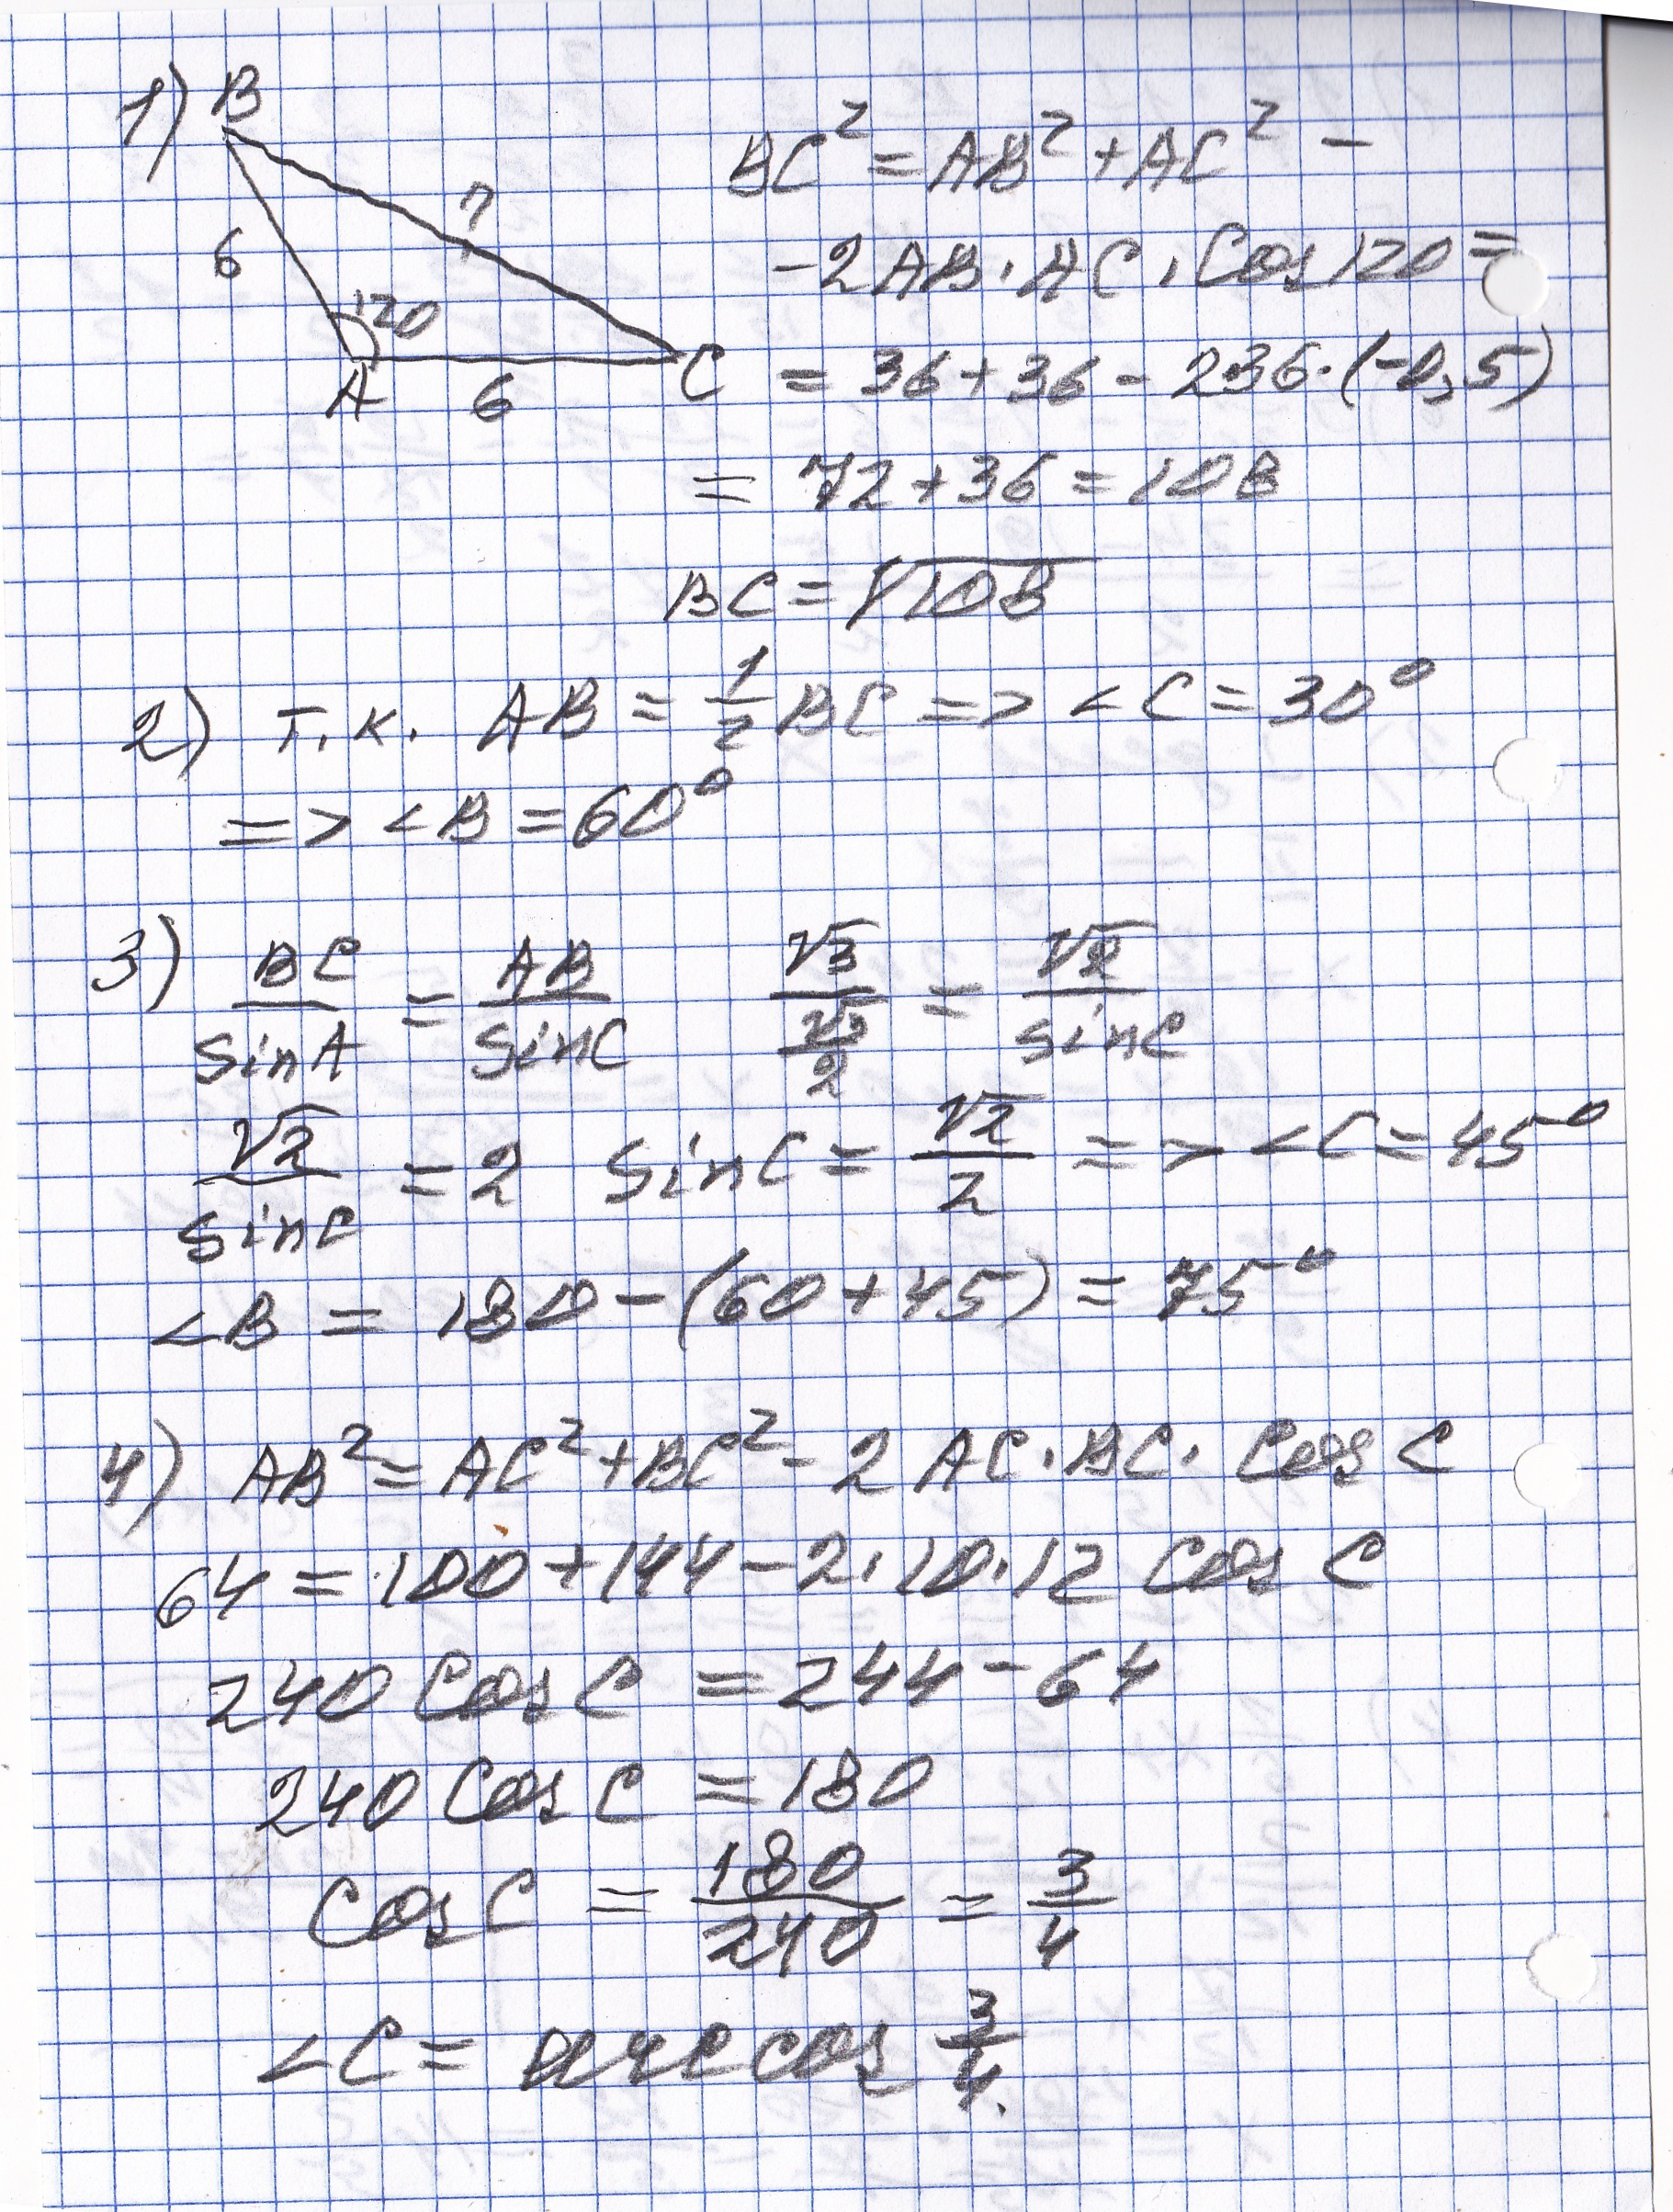 1) B
?
6
120
A
6
C
BC² = AB² + AC² -
- 2AB · AC · Cos 120 =
= 36 + 36 - 2·36·(-0,5)
= 72 + 36 = 108
BC = √108
2) т.к. AB = 1/2 BC => <C = 30°
=> <B = 60°
3) BC/SinA = AB/SinC √3/(√3/2) = √2/sinC
√2/sinC = 2 SinC = √2/2 => <C = 45°
<B = 180 - (60 + 45) = 75°
4) AB² = AC² + BC² - 2 AC · BC · Cos C
64 = 100 + 144 - 2·10·12 Cos C
240 Cos C = 244 - 64
240 Cos C = 180
Cos C = 180/240 = 3/4
<C = arccos 3/4.